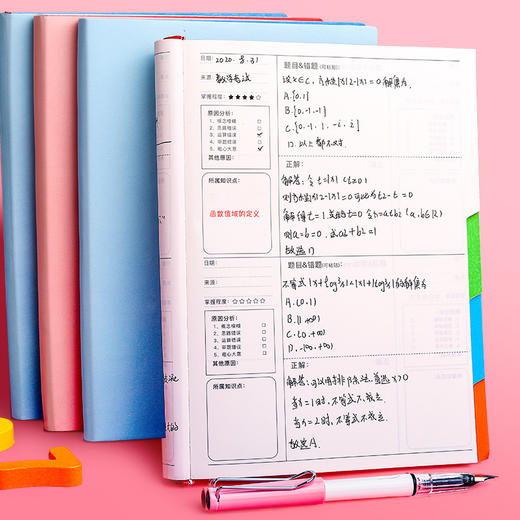 日期: 2020. 8. 31
来源: 数学考试
掌握程度: ★★★★☆
原因分析:
1、概念模糊 □
2、思路错误 □
3、运算错误 ✓
4、审题错误 □
5、粗心大意 ✓
其他原因:
所属知识点:
函数值域的定义
题目&错题(可粘贴):
设x∈C, 方程|x|2-|x|=0解集为
A.{0,1}
B.{0,-1,1}
C.{0,-1,1,-i,i}
D.以上都不对.
正解:
解答: 令t=|x| (t≥0)
则方程|x|2-|x|=0可为t2-t=0
解得t=1,或t=0 令x=a+bi (a,b∈R)
则a=b=0,或a2+b2=1
故选D
日期:
来源:
掌握程度: ☆☆☆☆☆
原因分析:
1、概念模糊 □
2、思路错误 □
3、运算错误 □
4、审题错误 □
5、粗心大意 □
其他原因:
所属知识点:
题目&错题(可粘贴):
不等式|x+log3x|<|x|+|log3x|的解集为
A.(0,1)
B.(1,+∞)
C.(0,+∞)
D.(-∞,+∞)
正解:
解答: 可以用排除法, 首选x>0
当x=1时, 不等式不成立.
当x=2时, 不等式不成立.
故选A.